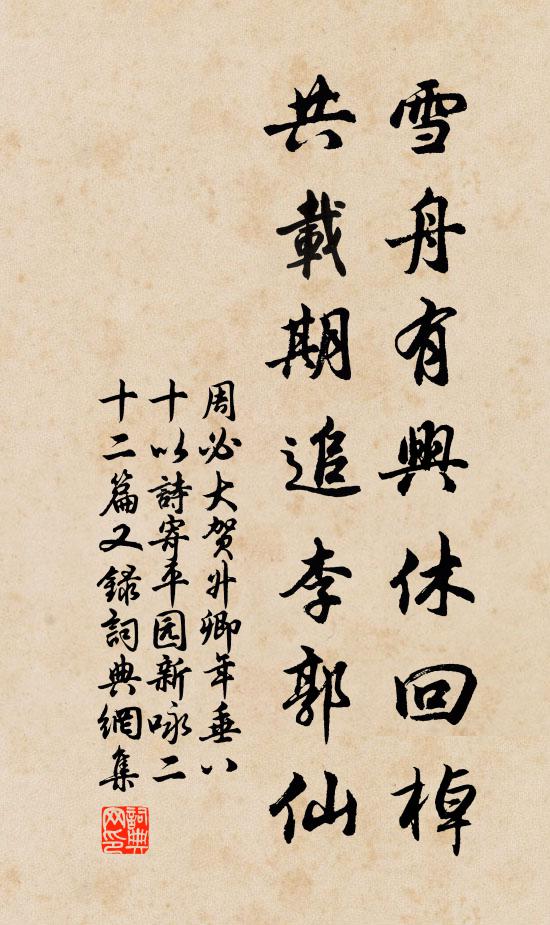 雪舟有興休回棹
共載期追李郭仙
周必大賀升卿年垂八
十以詩寄平园新咏二
十二篇又録詞典網集
詞典网印